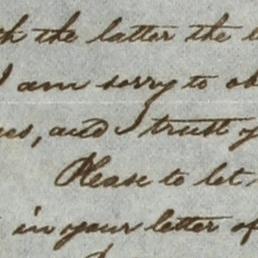 the latter the
I am sorry to ob
and I trust
Please to let
in your letter of